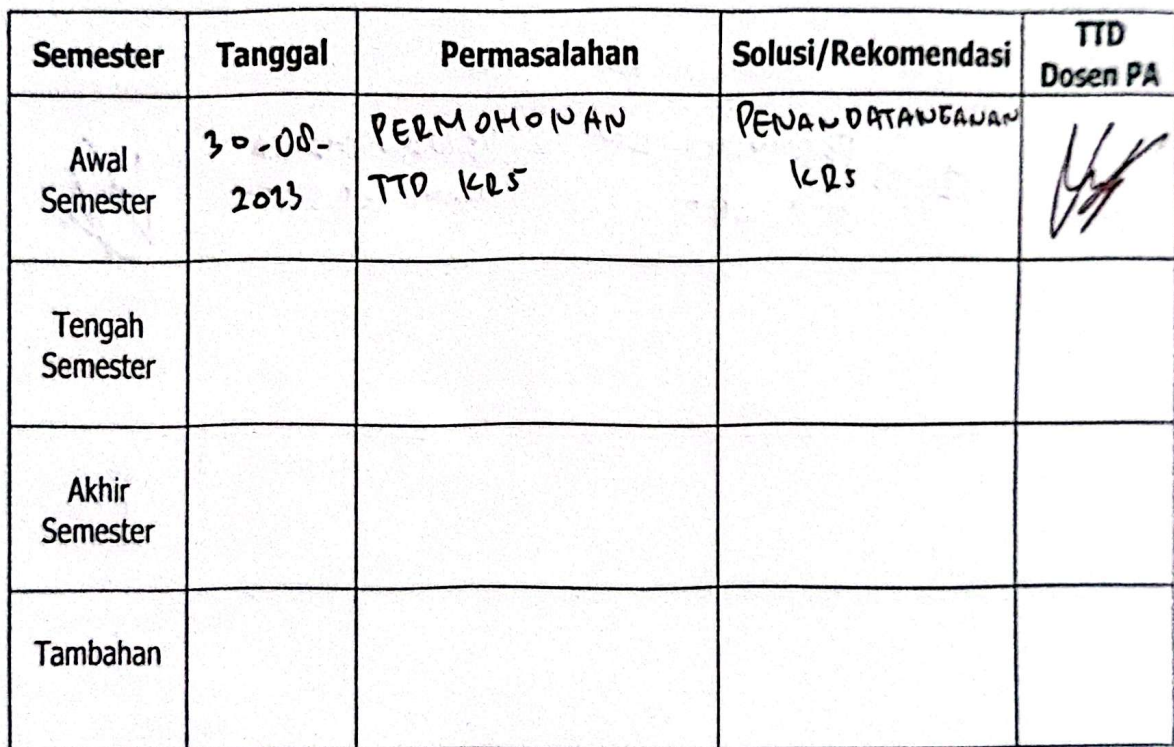 Semester Tanggal Permasalahan Solusi/Rekomendasi TTD Dosen PA
Awal Semester 30-08-2023 PERMOHONAN TTD KRS PENANDATANGANAN KRS
Tengah Semester
Akhir Semester
Tambahan